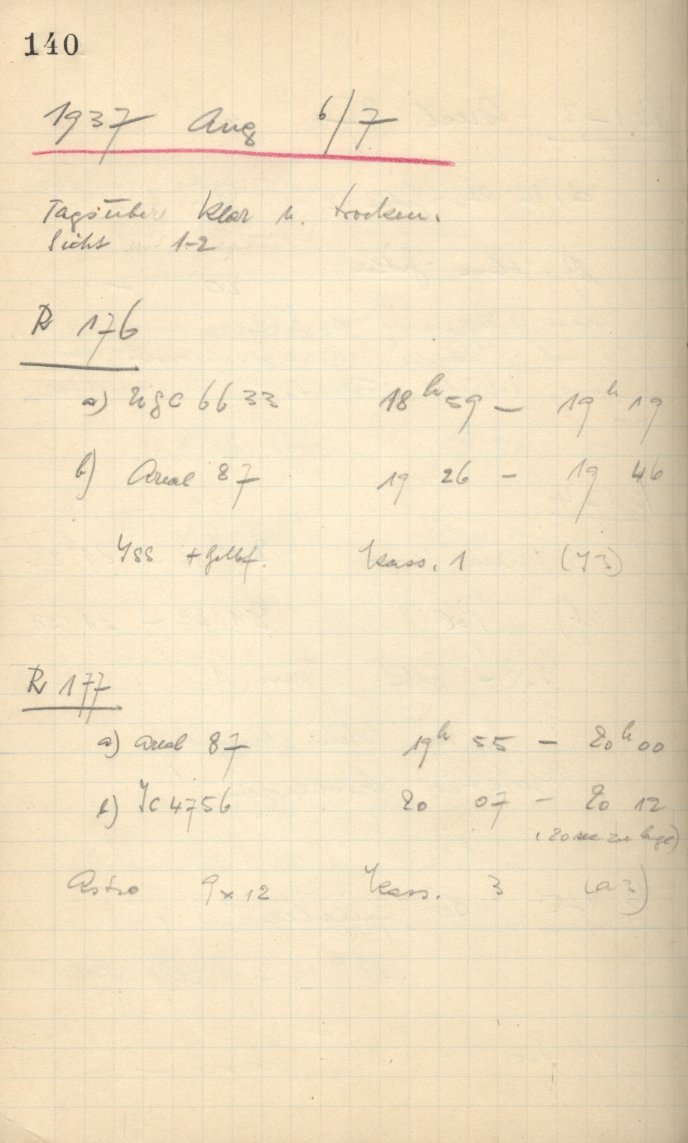 140
1937 Aug 6/7
Tagsüber klar u. trocken.
Sicht 1-2
R 176
a) NGC 6633 18h 59 — 19h 19
b) Areal 87 19 26 — 19 46
ISS + Gelbf. Kass. 1 (I3)
R 177
a) Areal 87 19h 55 — 20h 00
b) IC 4756 20 07 — 20 12
(20 zu lange)
Astro 9x12 Kass. 3 (a3)